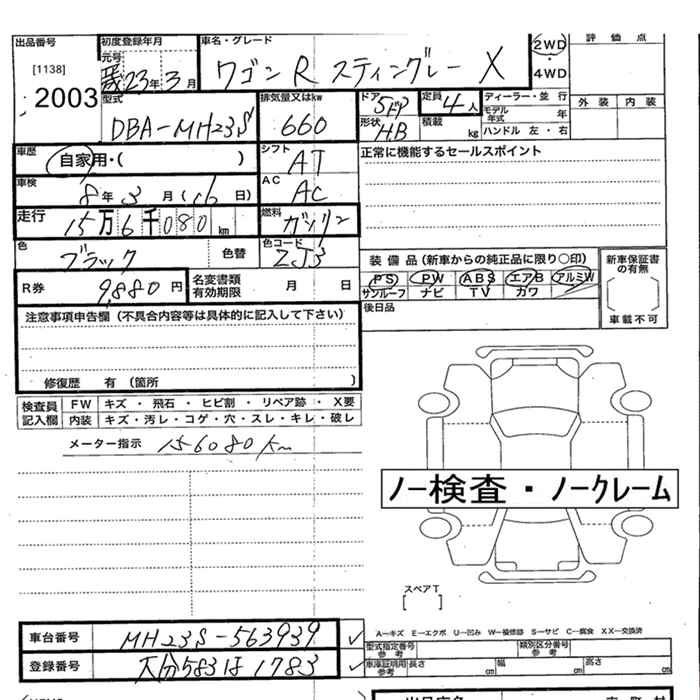 出品番号 初度登録年月 車名・グレード 2WD 評価点
[1138] 元号 23年3月 ワゴンR スティングレー X 4WD
2003 型式 排気量又はkw ドア 5ドア 定員 4人 ディーラー・並行 外装 内装
DBA-MH23S 660 形状 HB 積載 kg モデル年式 年
ハンドル 左・右
車歴 自家用・( ) シフト AT 正常に機能するセールスポイント
車検 8年3月(16日) AC AC
走行 15万6千080km 燃料 ガソリン
色 ブラック 色替 色コード ZJ3 装備品(新車からの純正品に限り○印) 新車保証書の有無
R券 9,880円 名変書類有効期限 月 日 PS PW ABS エアB アルミW
サンルーフ ナビ TV カワ 車載不可
注意事項申告欄(不具合内容等は具体的に記入して下さい) 後日品
修復歴 有(箇所 )
検査員 FW キズ・飛石・ヒビ割・リペア跡・X要
記入欄 内装 キズ・汚レ・コゲ・穴・スレ・キレ・破レ
メーター指示 156080km
ノー検査・ノークレーム
スペアT
[ ]
車台番号 MH23S-563939
A−キズ E−エクボ U−凹み W−補修跡 S−サビ C−腐食 XX−交換済
型式指定番号 参考 類別区分番号 参考
登録番号 大分583は1783 車庫証明用 参考 長さ cm 幅 cm 高さ cm